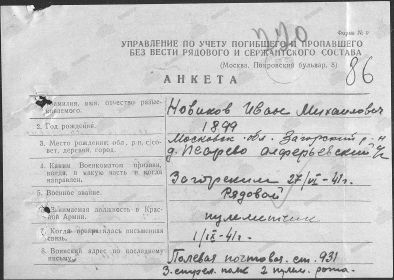 Форма № 9
УПРАВЛЕНИЕ ПО УЧЕТУ ПОГИБШЕГО И ПРОПАВШЕГО
БЕЗ ВЕСТИ РЯДОВОГО И СЕРЖАНТСКОГО СОСТАВА
(Москва, Покровский бульвар, 3)
86
АНКЕТА
Фамилия, имя, отчество разыскиваемого.
Новиков Иван Михайлович
2. Год рождения.
1899
3. Место рождения: обл., р-н, с/совет, деревня, город.
Московск. обл. Загорский р-н
д. Псарево
4. Каким Военкоматом призван, в какую часть и когда направлен.
Загорским 27/VI-41г.
5. Военное звание.
Рядовой
Занимаемая должность в Красной Армии.
пулеметчик
7. Когда прекратилась письменная связь.
1/IX-41г.
8. Воинский адрес по последнему письму.
Полевая почтовая ст. 931
3. стрел. полк 2 пулем. рота.